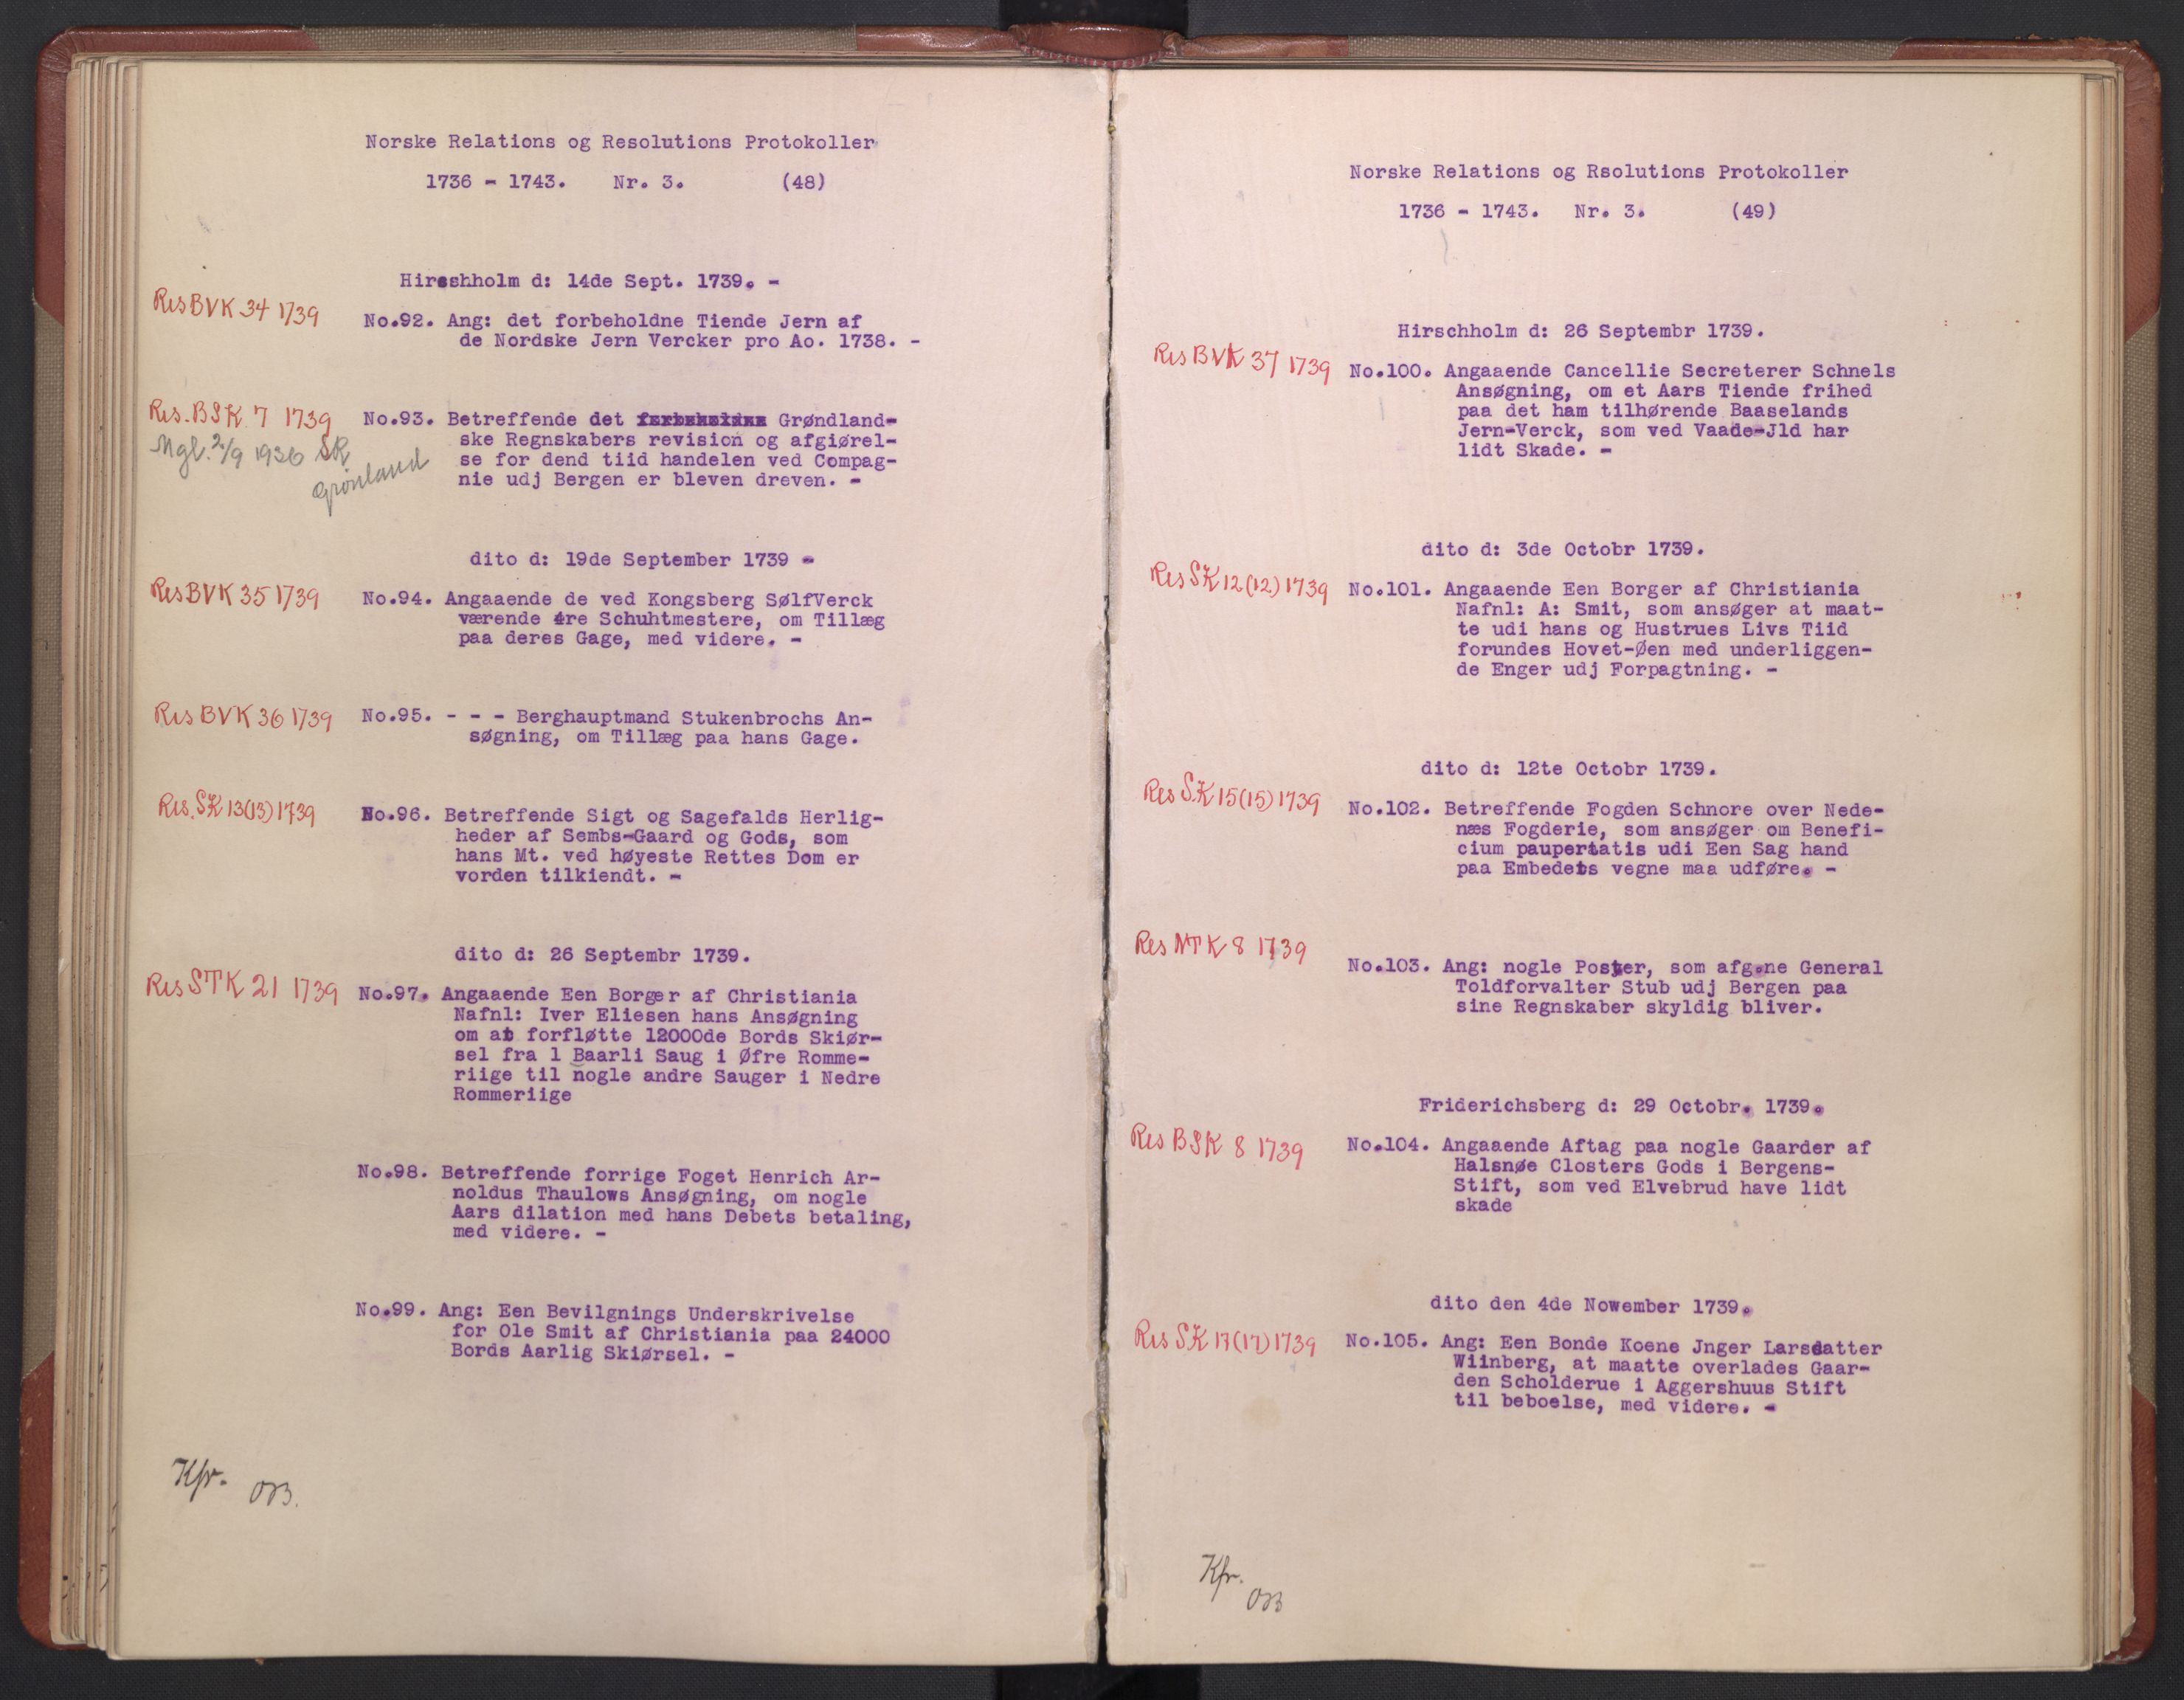 Norske Relations og Resolutions Protokoller
1736 - 1743. Nr. 3. (48)
Hirschholm d: 14de Sept. 1739. -
Res BVK 34 1739
No.92. Ang: det forbeholdne Tiende Jern af
de Nordske Jern Vercker pro Ao. 1738. -
Res. BSK 7 1739
Mgl. 2/9 1936 SR
Grønland
No.93. Betreffende det forbeholdne Grøndland-
ske Regnskabers revision og afgiørel-
se for dend tiid handelen ved Compag-
nie udj Bergen er bleven dreven. -
dito d: 19de September 1739 -
Res BVK 35 1739
No.94. Angaaende de ved Kongsberg SølfVerck
værende 4re Schuhtmestere, om Tillæg
paa deres Gage, med videre. -
Res BVK 36 1739
No.95. - - - Berghauptmand Stukenbrochs An-
søgning, om Tillæg paa hans Gage.
Res. SK 13(13) 1739
No.96. Betreffende Sigt og Sagefalds Herlig-
heder af Sembs-Gaard og Gods, som
hans Mt. ved høyeste Rettes Dom er
vorden tilkiendt. -
dito d: 26 Septembr 1739.
Res STK 21 1739
No.97. Angaaende Een Borger af Christiania
Nafnl: Iver Eliesen hans Ansøgning
om at forfløtte 12000de Bords Skiør-
sel fra 1 Baarli Saug i Øfre Romme-
riige til nogle andre Sauger i Nedre
Rommeriige
No.98. Betreffende forrige Foget Henrich Ar-
noldus Thaulows Ansøgning, om nogle
Aars dilation med hans Debets betaling,
med videre. -
No.99. Ang: Een Bevilgnings Underskrivelse
for Ole Smit af Christiania paa 24000
Bords Aarlig Skiørsel. -
Kfr.
Norske Relations og Rsolutions Protokoller
1736 - 1743. Nr. 3. (49)
Hirschholm d: 26 Septembr 1739.
Res BVK 37 1739
No.100. Angaaende Cancellie Secreterer Schnels
Ansøgning, om et Aars Tiende frihed
paa det ham tilhørende Baaselands
Jern-Verck, som ved Vaade-Jld har
lidt Skade. -
dito d: 3de Octobr 1739.
Res SK 12(12) 1739
No.101. Angaaende Een Borger af Christiania
Nafnl: A: Smit, som ansøger at maat-
te udi hans og Hustrues Livs Tiid
forundes Hovet-Øen med underliggen-
de Enger udj Forpagtning. -
dito d: 12te Octobr 1739.
Res SK 15(15) 1739
No.102. Betreffende Fogden Schnore over Nede-
næs Fogderie, som ansøger om Benefi-
cium paupertatis udi Een Sag hand
paa Embedets vegne maa udføre. -
Res NTK 8 1739
No.103. Ang: nogle Poster, som afgone General
Toldforvalter Stub udj Bergen paa
sine Regnskaber skyldig bliver.
Friderichsberg d: 29 Octobr. 1739.
Res BSK 8 1739
No.104. Angaaende Aftag paa nogle Gaarder af
Halsnøe Closters Gods i Bergens-
Stift, som ved Elvebrud have lidt
skade
dito den 4de Nowember 1739.
Res SK 17(17) 1739
No.105. Ang: Een Bonde Koene Jnger Larsdatter
Wiinberg, at maatte overlades Gaar-
den Scholderue i Aggershuus Stift
til beboelse, med videre. -
Kfr.